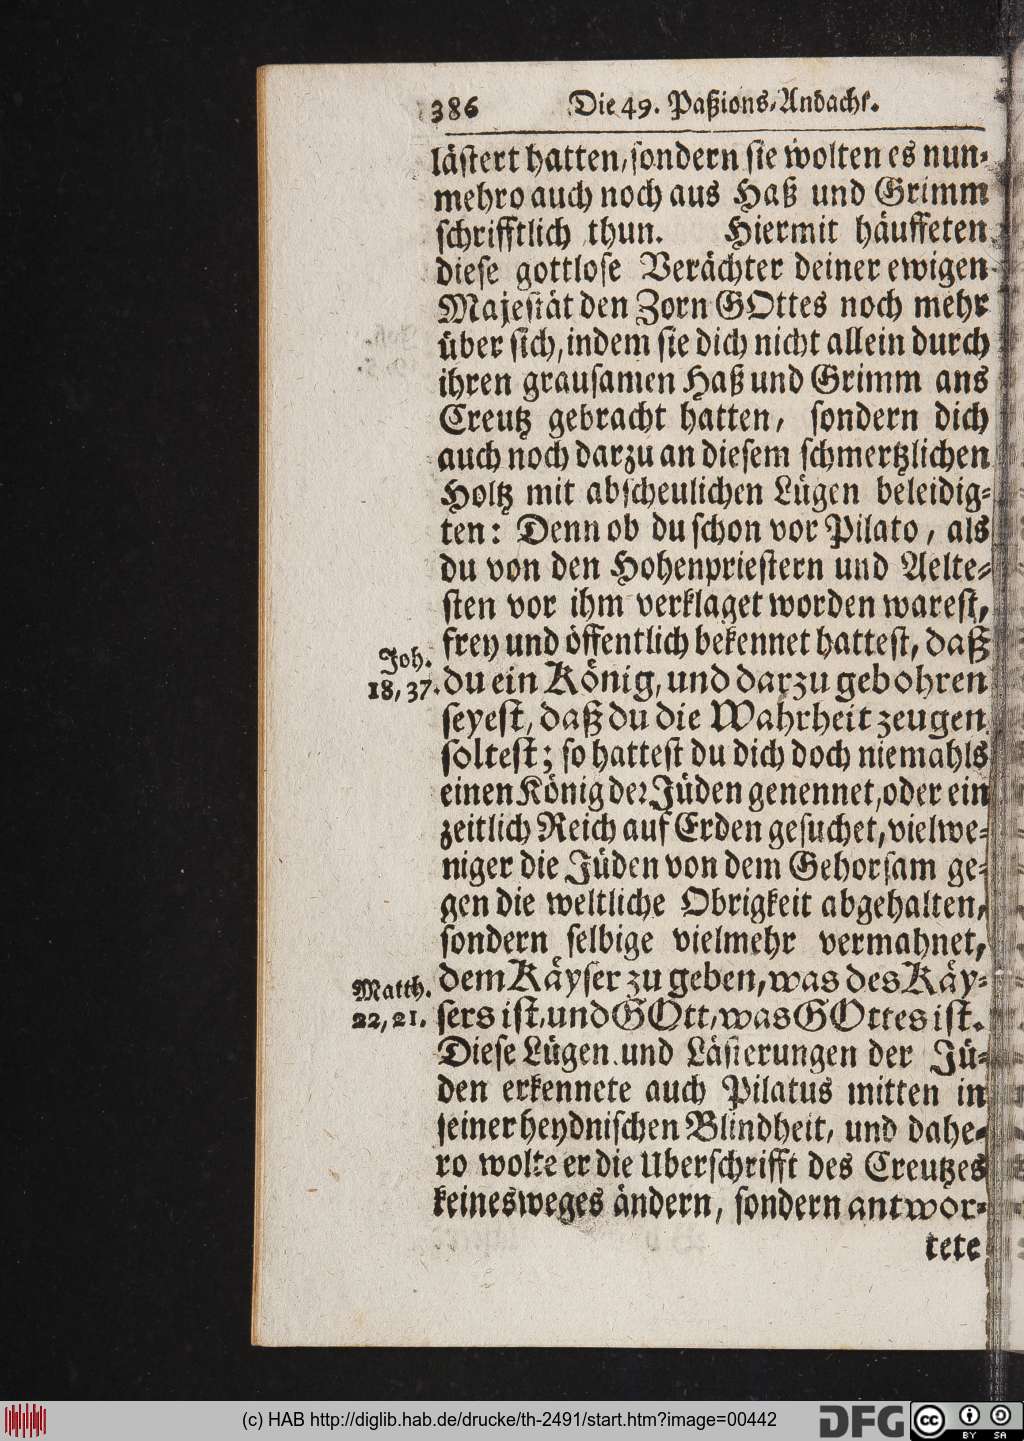 386 Die 49. Paßions-Andacht.
lästert hatten, sondern sie wolten es nun-
mehro auch noch aus Haß und Grimm
schrifftlich thun. Hiermit häuffeten
diese gottlose Verächter deiner ewigen
Majestät den Zorn GOttes noch mehr
über sich, indem sie dich nicht allein durch
ihren grausamen Haß und Grimm ans
Creutz gebracht hatten, sondern dich
auch noch darzu an diesem schmertzlichen
Holtz mit abscheulichen Lügen beleidig-
ten: Denn ob du schon vor Pilato, als
du von den Hohenpriestern und Aelte-
sten vor ihm verklaget worden warest,
frey und öffentlich bekennet hattest, daß
Joh.
18, 37. du ein König, und darzu gebohren
seyest, daß du die Wahrheit zeugen
soltest; so hattest du dich doch niemahls
einen König der Jüden genennet, oder ein
zeitlich Reich auf Erden gesuchet, vielwe-
niger die Jüden von dem Gehorsam ge-
gen die weltliche Obrigkeit abgehalten,
sondern selbige vielmehr vermahnet,
Matth. dem Käyser zu geben, was des Käy-
22, 21. sers ist, und GOtt, was GOttes ist.
Diese Lügen und Lästerungen der Jü-
den erkennete auch Pilatus mitten in
seiner heydnischen Blindheit, und dahe-
ro wolte er die Uberschrifft des Creutzes
keinesweges ändern, sondern antwor-
tete
(c) HAB http://diglib.hab.de/drucke/th-2491/start.htm?image=00442
DFG
cc
BY SA